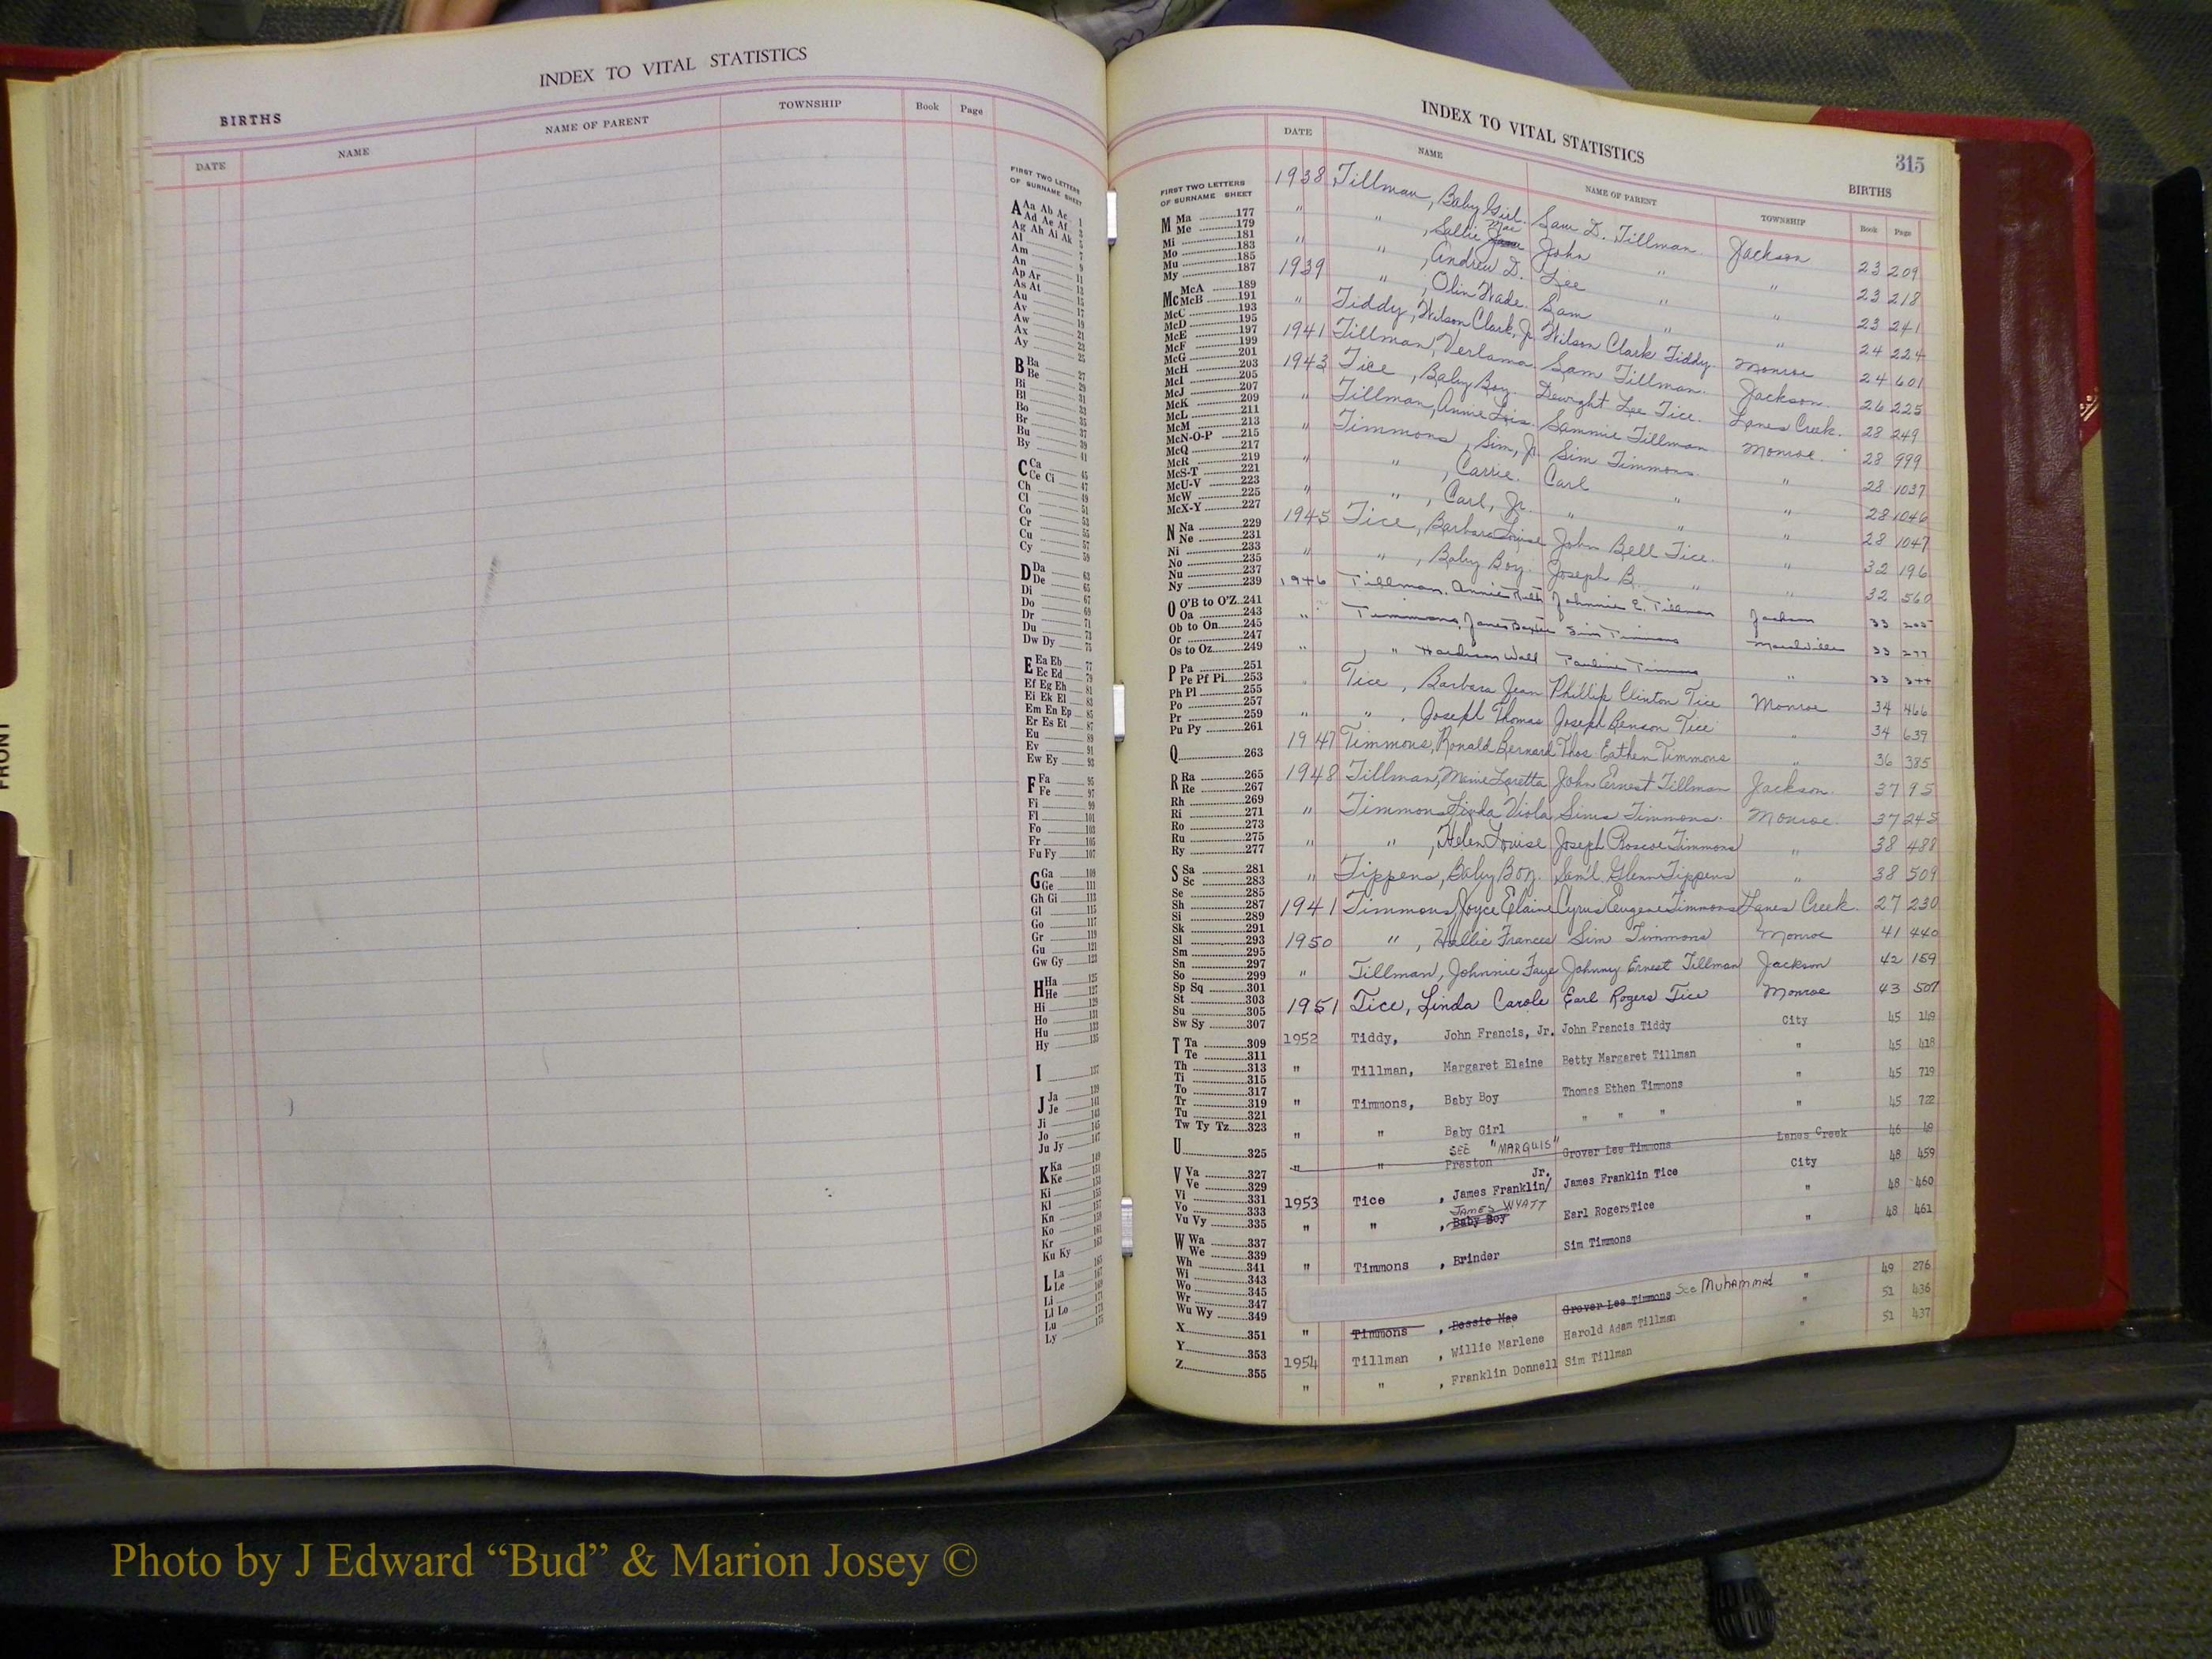 INDEX TO VITAL STATISTICS
BIRTHS
DATE NAME NAME OF PARENT TOWNSHIP Book Page
FIRST TWO LETTERS
OF SURNAME SHEET
A Aa Ab Ac 1
Ad Ae Af 3
Ag Ah Ai Ak 5
Al 7
Am 9
An
Ap Ar 11
As At 13
Au 15
Av 17
Aw 19
Ax 21
Ay 23
25
B Ba 27
Be 29
Bi 31
Bl 33
Bo 35
Br 37
Bu 39
By 41
C Ca 45
Ce Ci 47
Ch 49
Cl 51
Co 53
Cr 55
Cu 57
Cy 59
D Da 63
De 65
Di 67
Do 69
Dr 71
Du 73
Dw Dy 75
E Ea Eb 77
Ec Ed 79
Ef Eg Eh 81
Ei Ek El 83
Em En Ep 85
Er Es Et 87
Eu 89
Ev 91
Ew Ey 93
F Fa 95
Fe 97
Fi 99
Fl 101
Fo 103
Fr 105
Fu Fy 107
G Ga 109
Ge 111
Gh Gi 113
Gl 115
Go 117
Gr 119
Gu 121
Gw Gy 123
H Ha 125
He 127
Hi 129
Ho 131
Hu 133
Hy 135
I 137
J Ja 139
Je 141
Ji 143
Jo 145
Ju Jy 147
K Ka 149
Ke 151
Ki 153
Kl 155
Kn 157
Ko 159
Kr 161
Ku Ky 163
L La 165
Le 167
Li 169
Ll Lo 171
Lu 173
Ly 175
INDEX TO VITAL STATISTICS
315
BIRTHS
DATE NAME NAME OF PARENT TOWNSHIP Book Page
FIRST TWO LETTERS
OF SURNAME SHEET
M Ma 177
Me 179
Mi 181
Mo 183
Mu 185
My 187
Mc McA 189
McB 191
McC 193
McD 195
McE 197
McF 199
McG 201
McH 203
McI 205
McJ 207
McK 209
McL 211
McM 213
McN-O-P 215
McQ 217
McR 219
McS-T 221
McU-V 223
McW 225
McX-Y 227
N Na 229
Ne 231
Ni 233
No 235
Nu 237
Ny 239
O O'B to O'Z 241
Oa 243
Ob to On 245
Or 247
Os to Oz 249
P Pa 251
Pe Pf Pi 253
Ph Pl 255
Po 257
Pr 259
Pu Py 261
Q 263
R Ra 265
Re 267
Rh 269
Ri 271
Ro 273
Ru 275
Ry 277
S Sa 281
Sc 283
Se 285
Sh 287
Si 289
Sk 291
Sl 293
Sm 295
Sn 297
So 299
Sp Sq 301
St 303
Su 305
Sw Sy 307
T Ta 309
Te 311
Th 313
Ti 315
To 317
Tr 319
Tu 321
Tw Ty Tz 323
U 325
V Va 327
Ve 329
Vi 331
Vo 333
Vu Vy 335
W Wa 337
We 339
Wh 341
Wi 343
Wo 345
Wr 347
Wu Wy 349
X 351
Y 353
Z 355
1938 Tillman, Baby Girl. Sam D. Tillman Jackson 23 209
" " , Sallie Mae John " " 23 218
" " , Andrew D. Lee " " 23 241
1939 " , Olin Wade. Sam " " 24 224
" Tiddy, Wilson Clark, Jr. Wilson Clark Tiddy Monroe 24 601
1941 Tillman, Verlama Sam Tillman. Jackson. 26 225
1943 Tice, Baby Boy. Dewight Lee Tice. Lanes Creek. 28 249
" Tillman, Annie Lois. Sammie Tillman Monroe. 28 999
" Timmons, Sim, Jr. Sim Timmons " 28 1037
" " , Carrie. Carl " " 28 1046
" " , Carl, Jr. " " " 28 1047
1945 Tice, Barbara Louise John Bell Tice. " 32 196
" " , Baby Boy. Joseph B. " " 32 560
1946 Tillman, Annie Ruth Johnnie E. Tillman Jackson 33 205
" Timmons, James Baxter Sim Timmons Marshville 33 277
" " Hardison Wall Pauline Timmons " 33 344
" Tice, Barbara Jean Phillip Clinton Tice Monroe 34 466
" " , Joseph Thomas Joseph Benson Tice " 34 639
1947 Timmons, Ronald Bernard Thos. Eathen Timmons " 36 385
1948 Tillman, Mamie Loretta John Ernest Tillman Jackson. 37 95
" Timmons, Linda Viola Sims Timmons. Monroe. 37 245
" " , Helen Louise Joseph Roscoe Timmons " 38 488
" Tippens, Baby Boy. Sam'l. Glenn Tippens " 38 509
1941 Timmons, Joyce Elaine Cyrus Eugene Timmons Lanes Creek. 27 230
1950 " , Hallie Frances Sim Timmons Monroe 41 440
" Tillman, Johnnie Faye Johnny Ernest Tillman Jackson 42 159
1951 Tice, Linda Carole Earl Rogers Tice Monroe 43 507
1952 Tiddy, John Francis, Jr. John Francis Tiddy City 45 149
" Tillman, Margaret Elaine Betty Margaret Tillman " 45 418
" Timmons, Baby Boy Thomas Ethen Timmons " 45 719
" " Baby Girl " " " " 45 722
SEE "MARQUIS"
" " Preston Grover Lee Timmons Lanes Creek 46 49
1953 Tice , James Franklin/ Jr. James Franklin Tice City 48 459
JAMES WYATT
" " , Baby Boy Earl Rogers Tice " 48 460
" Timmons , Brinder Sim Timmons " 48 461
" Timmons , Bessie Mae Grover Lee Timmons See Muhammad " 49 276
1954 Tillman , Willie Marlene Harold Adam Tillman " 51 436
" " , Franklin Donnell Sim Tillman " 51 437
FRONT
Photo by J Edward “Bud” & Marion Josey ©